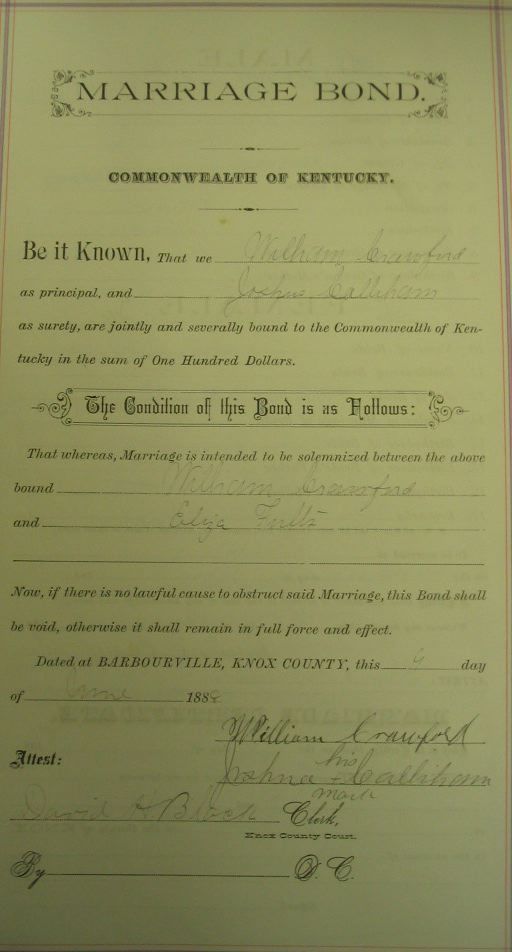 MARRIAGE BOND.
COMMONWEALTH OF KENTUCKY.
Be it Known, That we William Crawford
as principal, and Joshua Calliham
as surety, are jointly and severally bound to the Commonwealth of Ken-
tucky in the sum of One Hundred Dollars.
The Condition of this Bond is as Follows:
That whereas, Marriage is intended to be solemnized between the above
bound William Crawford
and Eliza Fults
Now, if there is no lawful cause to obstruct said Marriage, this Bond shall
be void, otherwise it shall remain in full force and effect.
Dated at BARBOURVILLE, KNOX COUNTY, this day
of June 188
William Crawford
Attest:
his
Joshua + Callihann
mark
David Black Clerk,
Knox County Court.
By D. C.